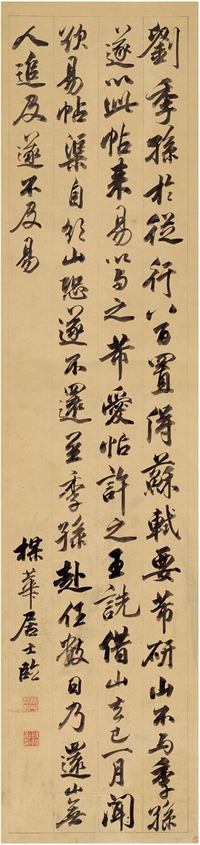 劉季孫於從行八百置得蘇軾要芾研山不与季孫
遂以此帖来易以与之芾愛帖許之王詵借山去已一月聞
欲易帖渠自山恐遂不還至季孫赴任數日乃還山無
人追及遂不及易
楳華居士臨